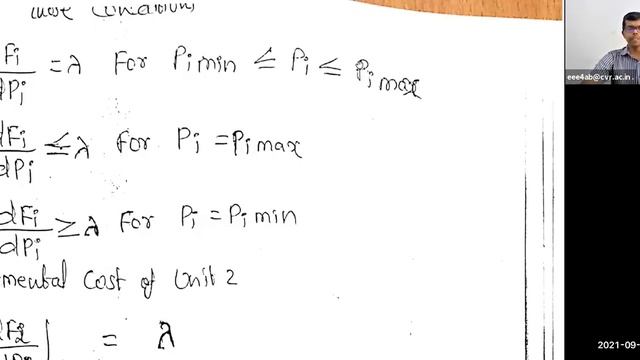 most conditions
Fi/dPi = λ For Pi min ≤ Pi ≤ Pi max
dFi/dPi ≤ λ For Pi = Pi max
dFi/dPi ≥ λ For Pi = Pi min
mental Cost of Unit 2
dF2 = λ
eee4ab@cvr.ac.in
2021-09-